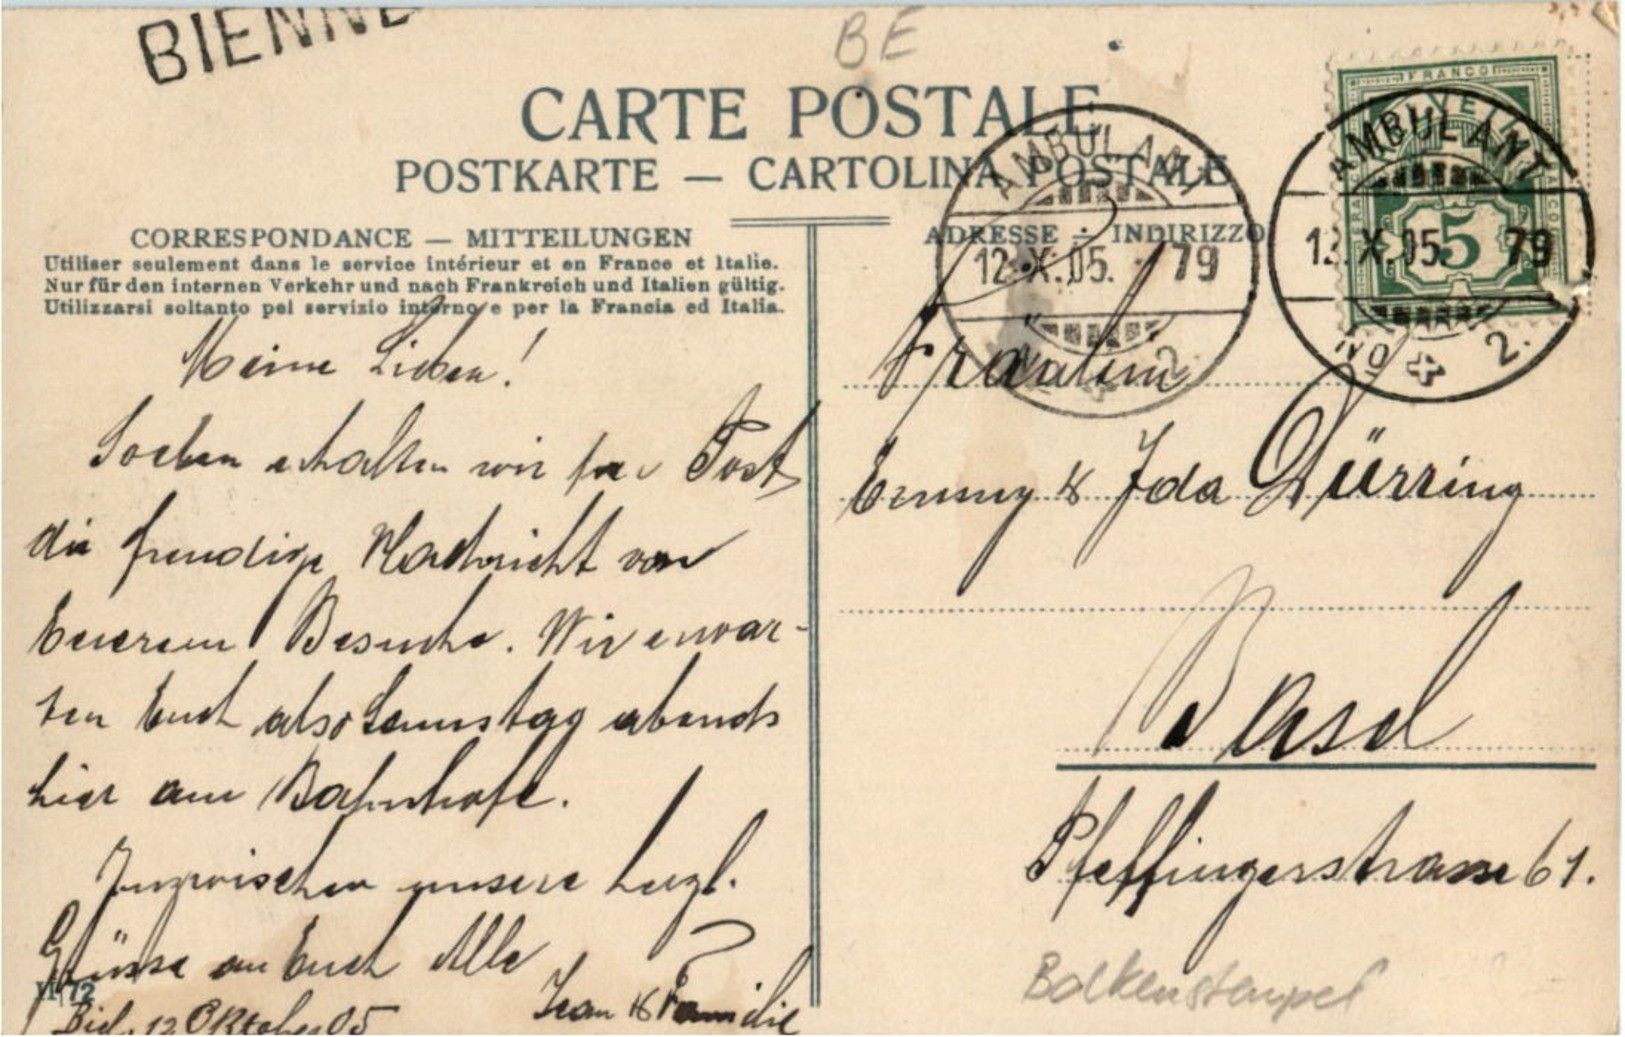 BIENNE
BE
CARTE POSTALE
POSTKARTE — CARTOLINA POSTALE
CORRESPONDANCE — MITTEILUNGEN
Utiliser seulement dans le service intérieur et en France et Italie.
Nur für den internen Verkehr und nach Frankreich und Italien gültig.
Utilizzarsi soltanto pel servizio interno e per la Francia ed Italia.
Meine Lieben!
Soeben erhalten wir per Post
die freudige Nachricht von
Euerem Besuche. Wir erwar-
ten Euch also Samstag abends
hier am Bahnhofe.
Inzwischen unsere herzl.
Grüsse an Euch Alle
Jean & Familie
Biel, 12 Oktober 05
11172
ADRESSE — INDIRIZZO
AMBULANT
12.X.05. 79
2.
FRANCO
5
AMBULANT
12.X.05. 79
No 2.
Fräulein
Emmy & Ida Dürring
Basel
Pfeffingerstrasse 61.
Balkenstempel